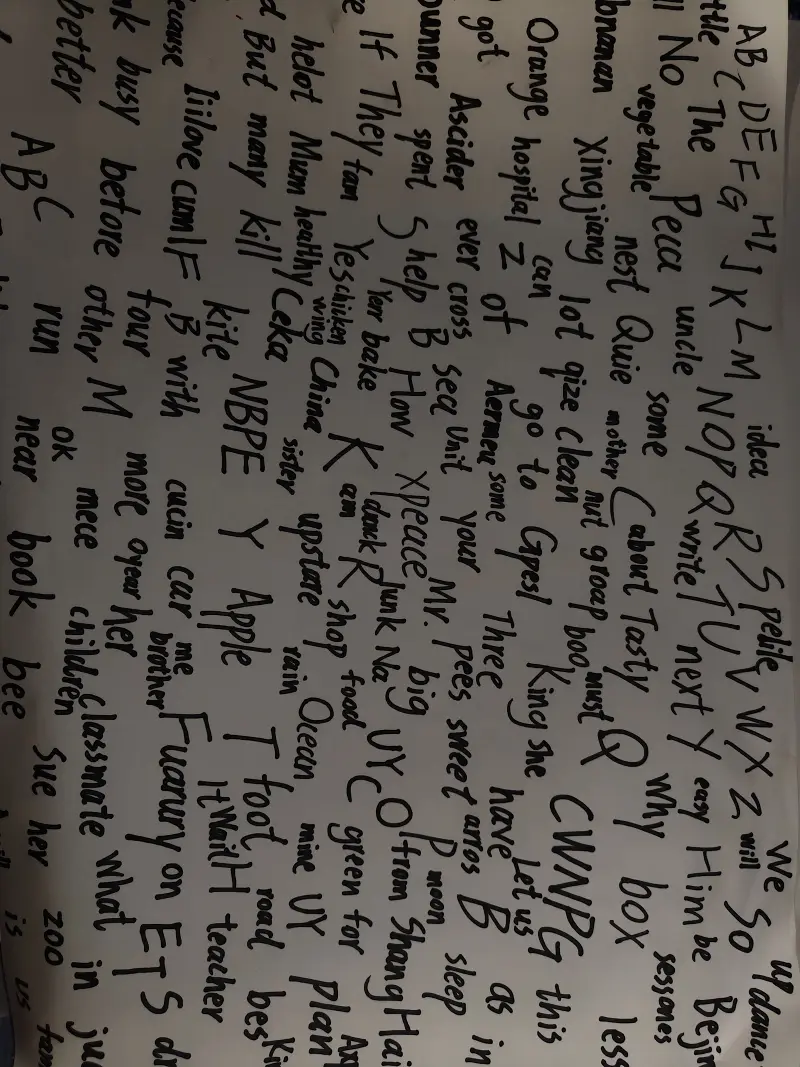 ABC DEFG HIJKLM idea we up
ttle C The NOPQRSTUVWXZ will so dance
ll No Pecca uncle write next Y easy Him be Bejin
vegetable nest Quie some about Tasty Why box sessones
bnanan Xingjiang lot qize clean mother nut groap boo must Q less
Orange hospital can go to Gpesl King she CWNPG this
got Z of Aermeu some Three have Let us B as in
Ascider ever cross Sea Unit your Mr. pees sweet arros P moon sleep
ounner spent S help B How xpeace big
e If They fan Yes Yerr bake K dank R Junk Na UYO from ShangHai
helot Mum healthy chicken wing China am shop food C green for Ax
d, But many kill Ceka sister upstare rain Ocean mine UY plan
ecause Iiilove cumIF kite NBPE Y Apple T foot road bes Ki
B with cucin car me brother It Wait H teacher
nk busy before other four more oyear her Fuanury on ETS dr
better M mece children classmate what in ju
ABC run ok near book bee Sue her zoo
is us fam